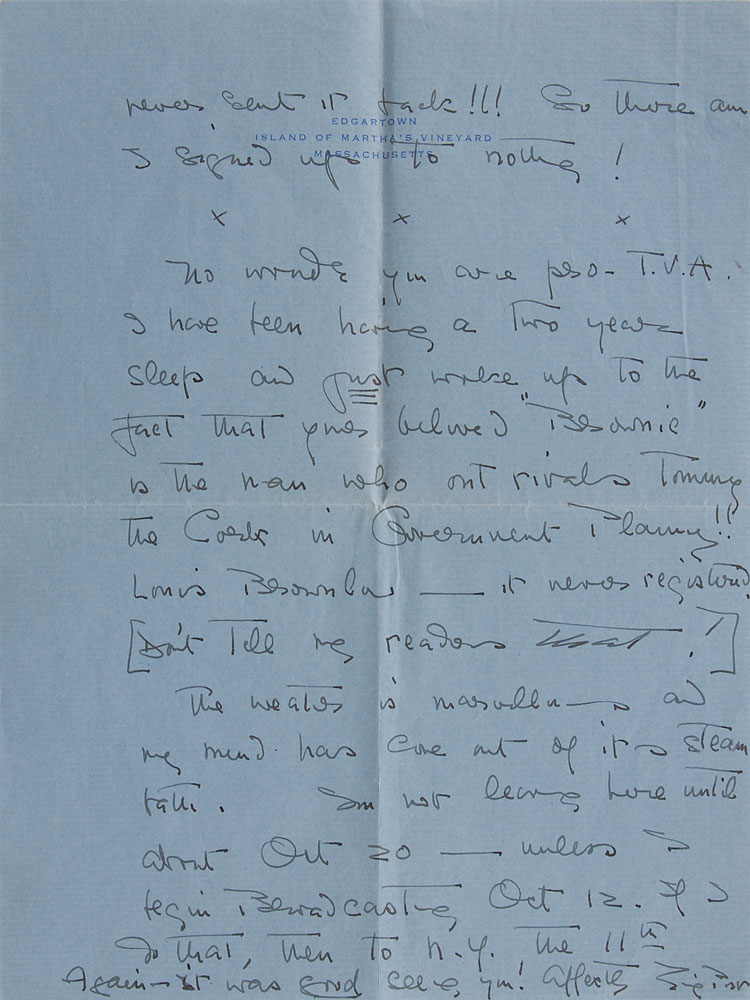 never sent it back!!! So there am
EDGARTOWN
ISLAND OF MARTHA'S VINEYARD
MASSACHUSETTS
I signed up to nothing!
x x x
No wonder you are pro-T.V.A.
I have been having a two years
sleep and just woke up to the
fact that your beloved "Brownie"
is the man who out rivals Tommy
the Cork in Government Planning!!
Louis Brownlow — it never registered
[Don't tell my readers that!]
The weather is marvellous and
my mind has come out of its steam
bath. Im not leaving here until
about Oct 20 — unless I
begin Broadcasting Oct 12. If I
do that, then to N.Y. the 11th
Again - it was good seeing you! Affectly